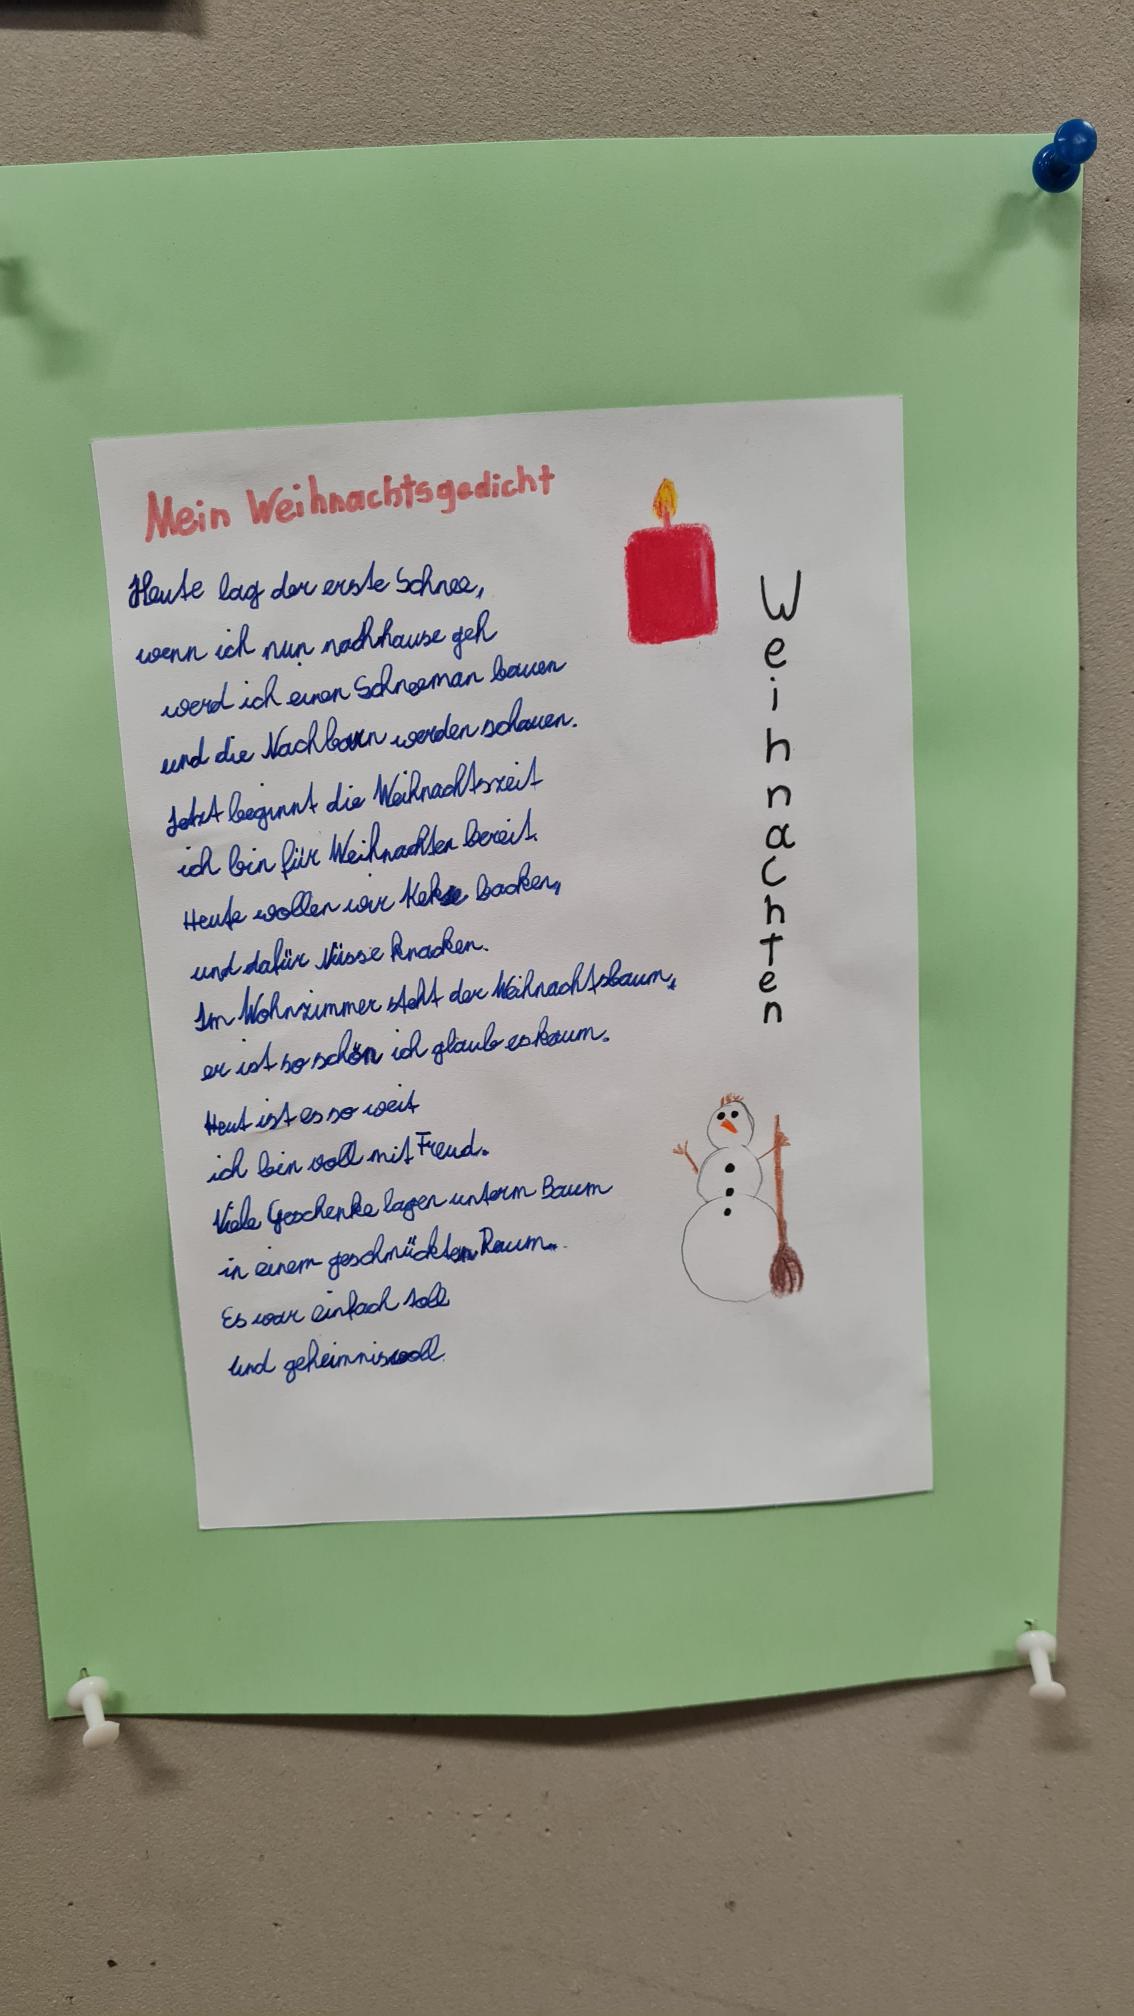 Mein Weihnachtsgedicht
Heute lag der erste Schnee,
wenn ich nun nachhause geh
werd ich einen Schneeman bauen
und die Nachbarn werden schauen.
Jetzt beginnt die Weihnachtszeit
ich bin für Weihnachten bereit.
Heute wollen wir Kekse backen,
und dafür Nüsse knacken.
Im Wohnzimmer steht der Weihnachtsbaum,
er ist so schön ich glaub es kaum.
Heut ist es so weit
ich bin voll mit Freud.
Viele Geschenke lagen unterm Baum
in einem geschmückten Raum.
Es war einfach toll
und geheimnisvoll.
Weihnachten